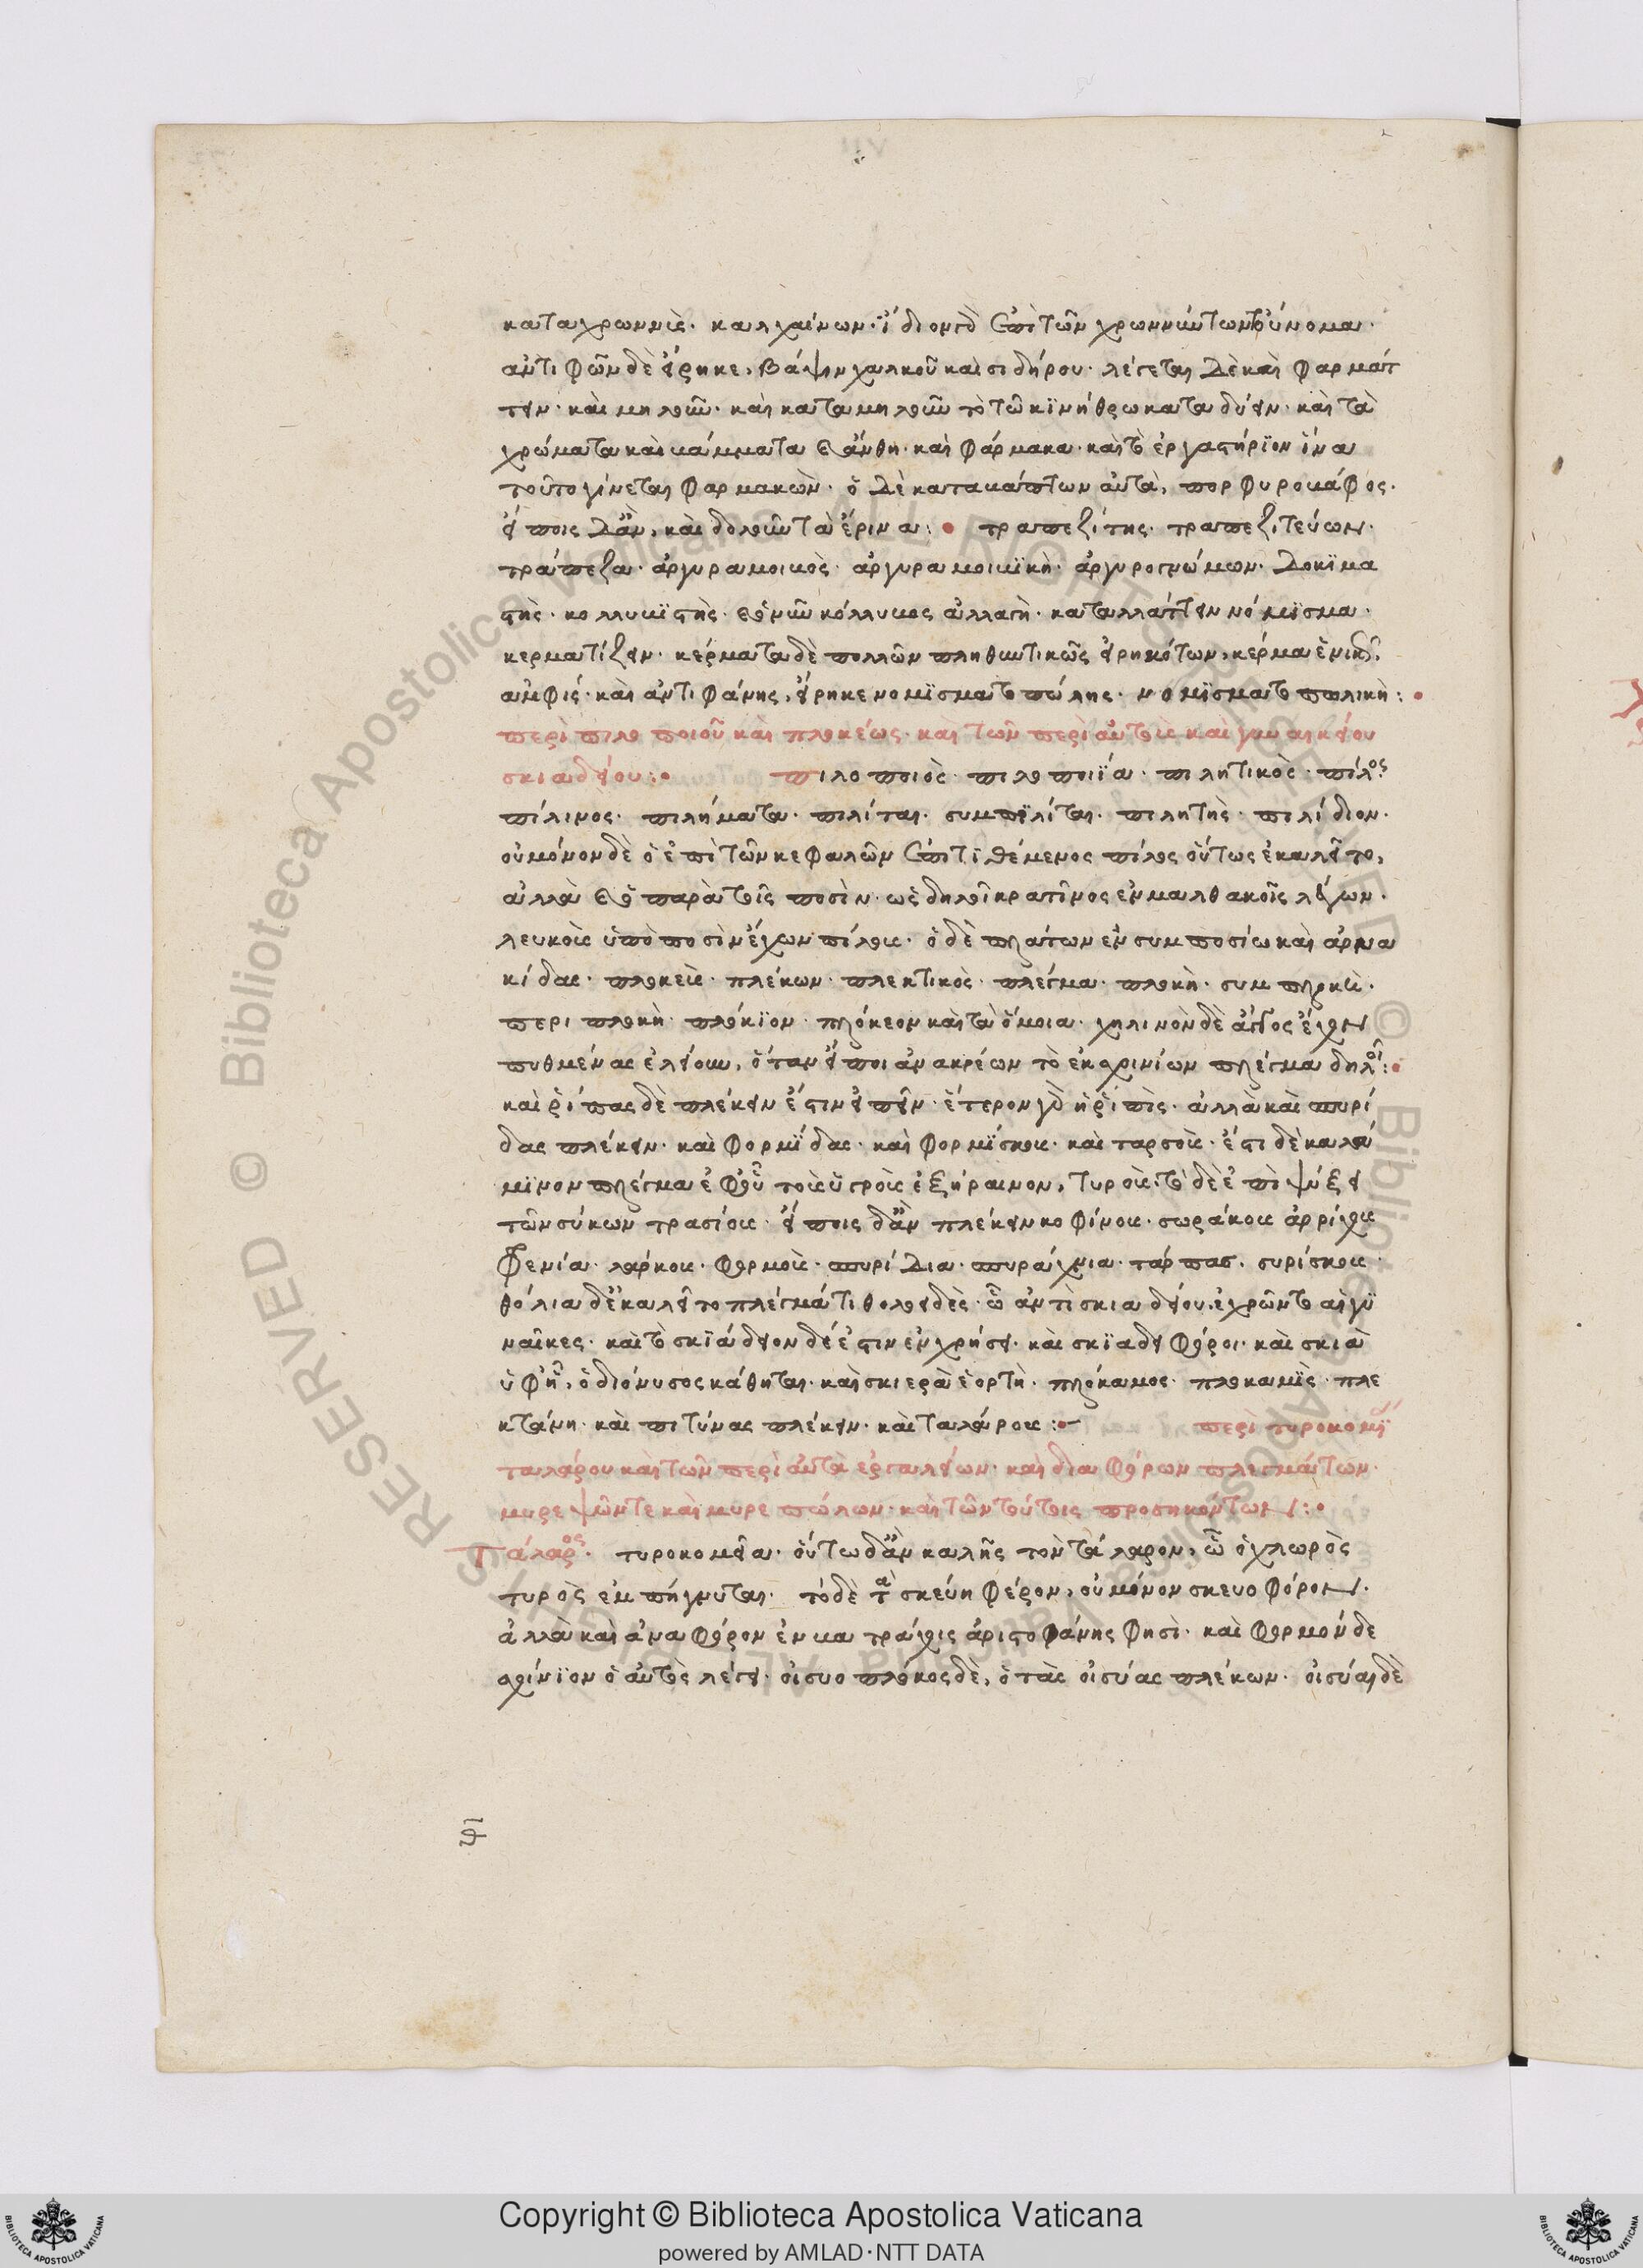 καταχρωννὺς· καλχαίνων· ἴδιον γὰρ ἐπὶ τῶν χρωννύντων τοὔνομα·
ἀντιφῶν δὲ εἴρηκε, βάψιν χαλκοῦ καὶ σιδήρου· λέγεται δὲ καὶ φαρμάτ
τειν· καὶ μηλοῦν· καὶ καταμηλοῦν τὸ τῶ κινήθρω καταδύειν· καὶ τὰ
χρώματα καὶ βάμματα καὶ ἄνθη· καὶ φάρμακα· καὶ τὸ ἐργαστήριον ἵνα
τοῦτο γίνεται φαρμακών· ὁ δὲ καταβάπτων αὐτὰ, πορφυροβάφος·
εἴποις δ' ἂν, καὶ δολοῦν τὰ ἔρια: • τραπεζίτης· τραπεζιτεύων·
τράπεζα· ἀργυραμοιβός· ἀργυραμοιβικὴ· ἀργυρογνώμων· δοκιμα
στής· κολλυβιστής· καὶ νῦν κόλλυβος ἀλλαγὴ· καταλλάττειν νόμισμα·
κερματίζειν· κέρματα δὲ πολλῶν πληθυντικῶς εἰρηκότων, κέρμα ἑνικῶς,
ἄμφις· καὶ ἀντιφάνης, εἴρηκε νομισματοπώλης· νομισματοπωλικὴ: •
περὶ πιλοποιοῦ καὶ πλοκέως· καὶ τῶν περὶ αὐτοὺς καὶ γυναικείου
σκιαδείου: • πιλοποιὸς· πιλοποιΐα· πιλητικὸς· πίλος
πίλινος· πιλήματα· πιλίται· συμπιλίται· πιλητὴς· πιλίδιον·
οὐ μόνον δὲ ὁ ἐπὶ τῶν κεφαλῶν ἐπιτιθέμενος πίλος οὕτως ἐκαλεῖτο,
ἀλλὰ καὶ ὁ παρὰ τοῖς ποσὶν· ὡς δηλοῖ κρατῖνος ἐν μαλθακοῖς λέγων·
λευκοὺς ὑπὸ ποσὶν ἔχων πίλους· ὁ δὲ πλάτων ἐν συμποσίω καὶ ἀρνα
κίδας· πλοκεὺς· πλέκων· πλεκτικὸς· πλέγμα· πλοκὴ· συμπλοκὺς·
περιπλοκὴ· πλόκιον· πλόκεον καὶ τὰ ὅμοια· χηλινὸν δὲ ἄγγος ἔχον
πυθμένας ἐλείους, ὅταν εἴποι ἀνακρέων τὸ ἐκ σχοινίων πλέγμα δηλοῖ: •
καὶ ῥίπας δὲ πλέκειν ἔστιν εἰπεῖν· ἕτερον γὰρ ἡ ῥιπὶς· ἀλλὰ καὶ σπυρί
δας πλέκειν· καὶ φορμίδας· καὶ φορμίσκους· καὶ ταρσοὺς· ἔστι δὲ καλού
μενον πλέγμα ἐφ' οὗ τοὺς ὑγροὺς ἐξήραινον, τυροὺς· τὸ δὲ ἐπὶ ψύξει
τῶν σύκων τρασίους· εἴποις δ' ἂν πλέκειν κοφίνους· σωράκους ἀρρίχους
φενία· λάρκους· φορμοὺς· σπυρίδια· σπυράχνια· τάρπας· συρίσκους·
θόλια δ' ἐκαλεῖτο πλέγμά τι θολοειδὲς· ὧ ἀντὶ σκιαδείου ἐχρῶντο αἱ γυ
ναῖκες· καὶ τὸ σκιάδειον δέ ἐστιν ἐν χρήσει· καὶ σκιαδειφόροι· καὶ σκιὰ
ὑφ' ἧ, ὁ διόνυσος κάθηται· καὶ σκιερὰ ἑορτὴ· πλόκαμος· πλοκαμὶς· πλε
κτάνη· καὶ πιτύνας πλέκειν· καὶ ταλάρους: • περὶ τυροκομι
ταλάρου καὶ τῶν περὶ αὐτὰ ἐργαλείων· καὶ διαφόρων πλεγμάτων·
μυρεψῶν τε καὶ μυρεπώλων· καὶ τῶν τούτοις προσηκόντων: •
Τάλαρος· τυροκομεία· οὕτω δ' ἂν καλῆς τὸν τάλαρον, ὧ ὁ χλωρὸς
τυρὸς ἐμπήγνυται· τὸ δὲ τὰ σκεύη φέρον, οὐ μόνον σκευοφόρον·
ἀλλὰ καὶ ἀναφόρον ἐν βατράχοις ἀριστοφάνης φησὶ· καὶ φορμὸν δὲ
σχοίνιον ὁ αὐτὸς λέγει· οἰσυοπλόκος δὲ, ὁ τὰς οἰσύας πλέκων· οἰσύαι δὲ
Copyright © Biblioteca Apostolica Vaticana
powered by AMLAD·NTT DATA